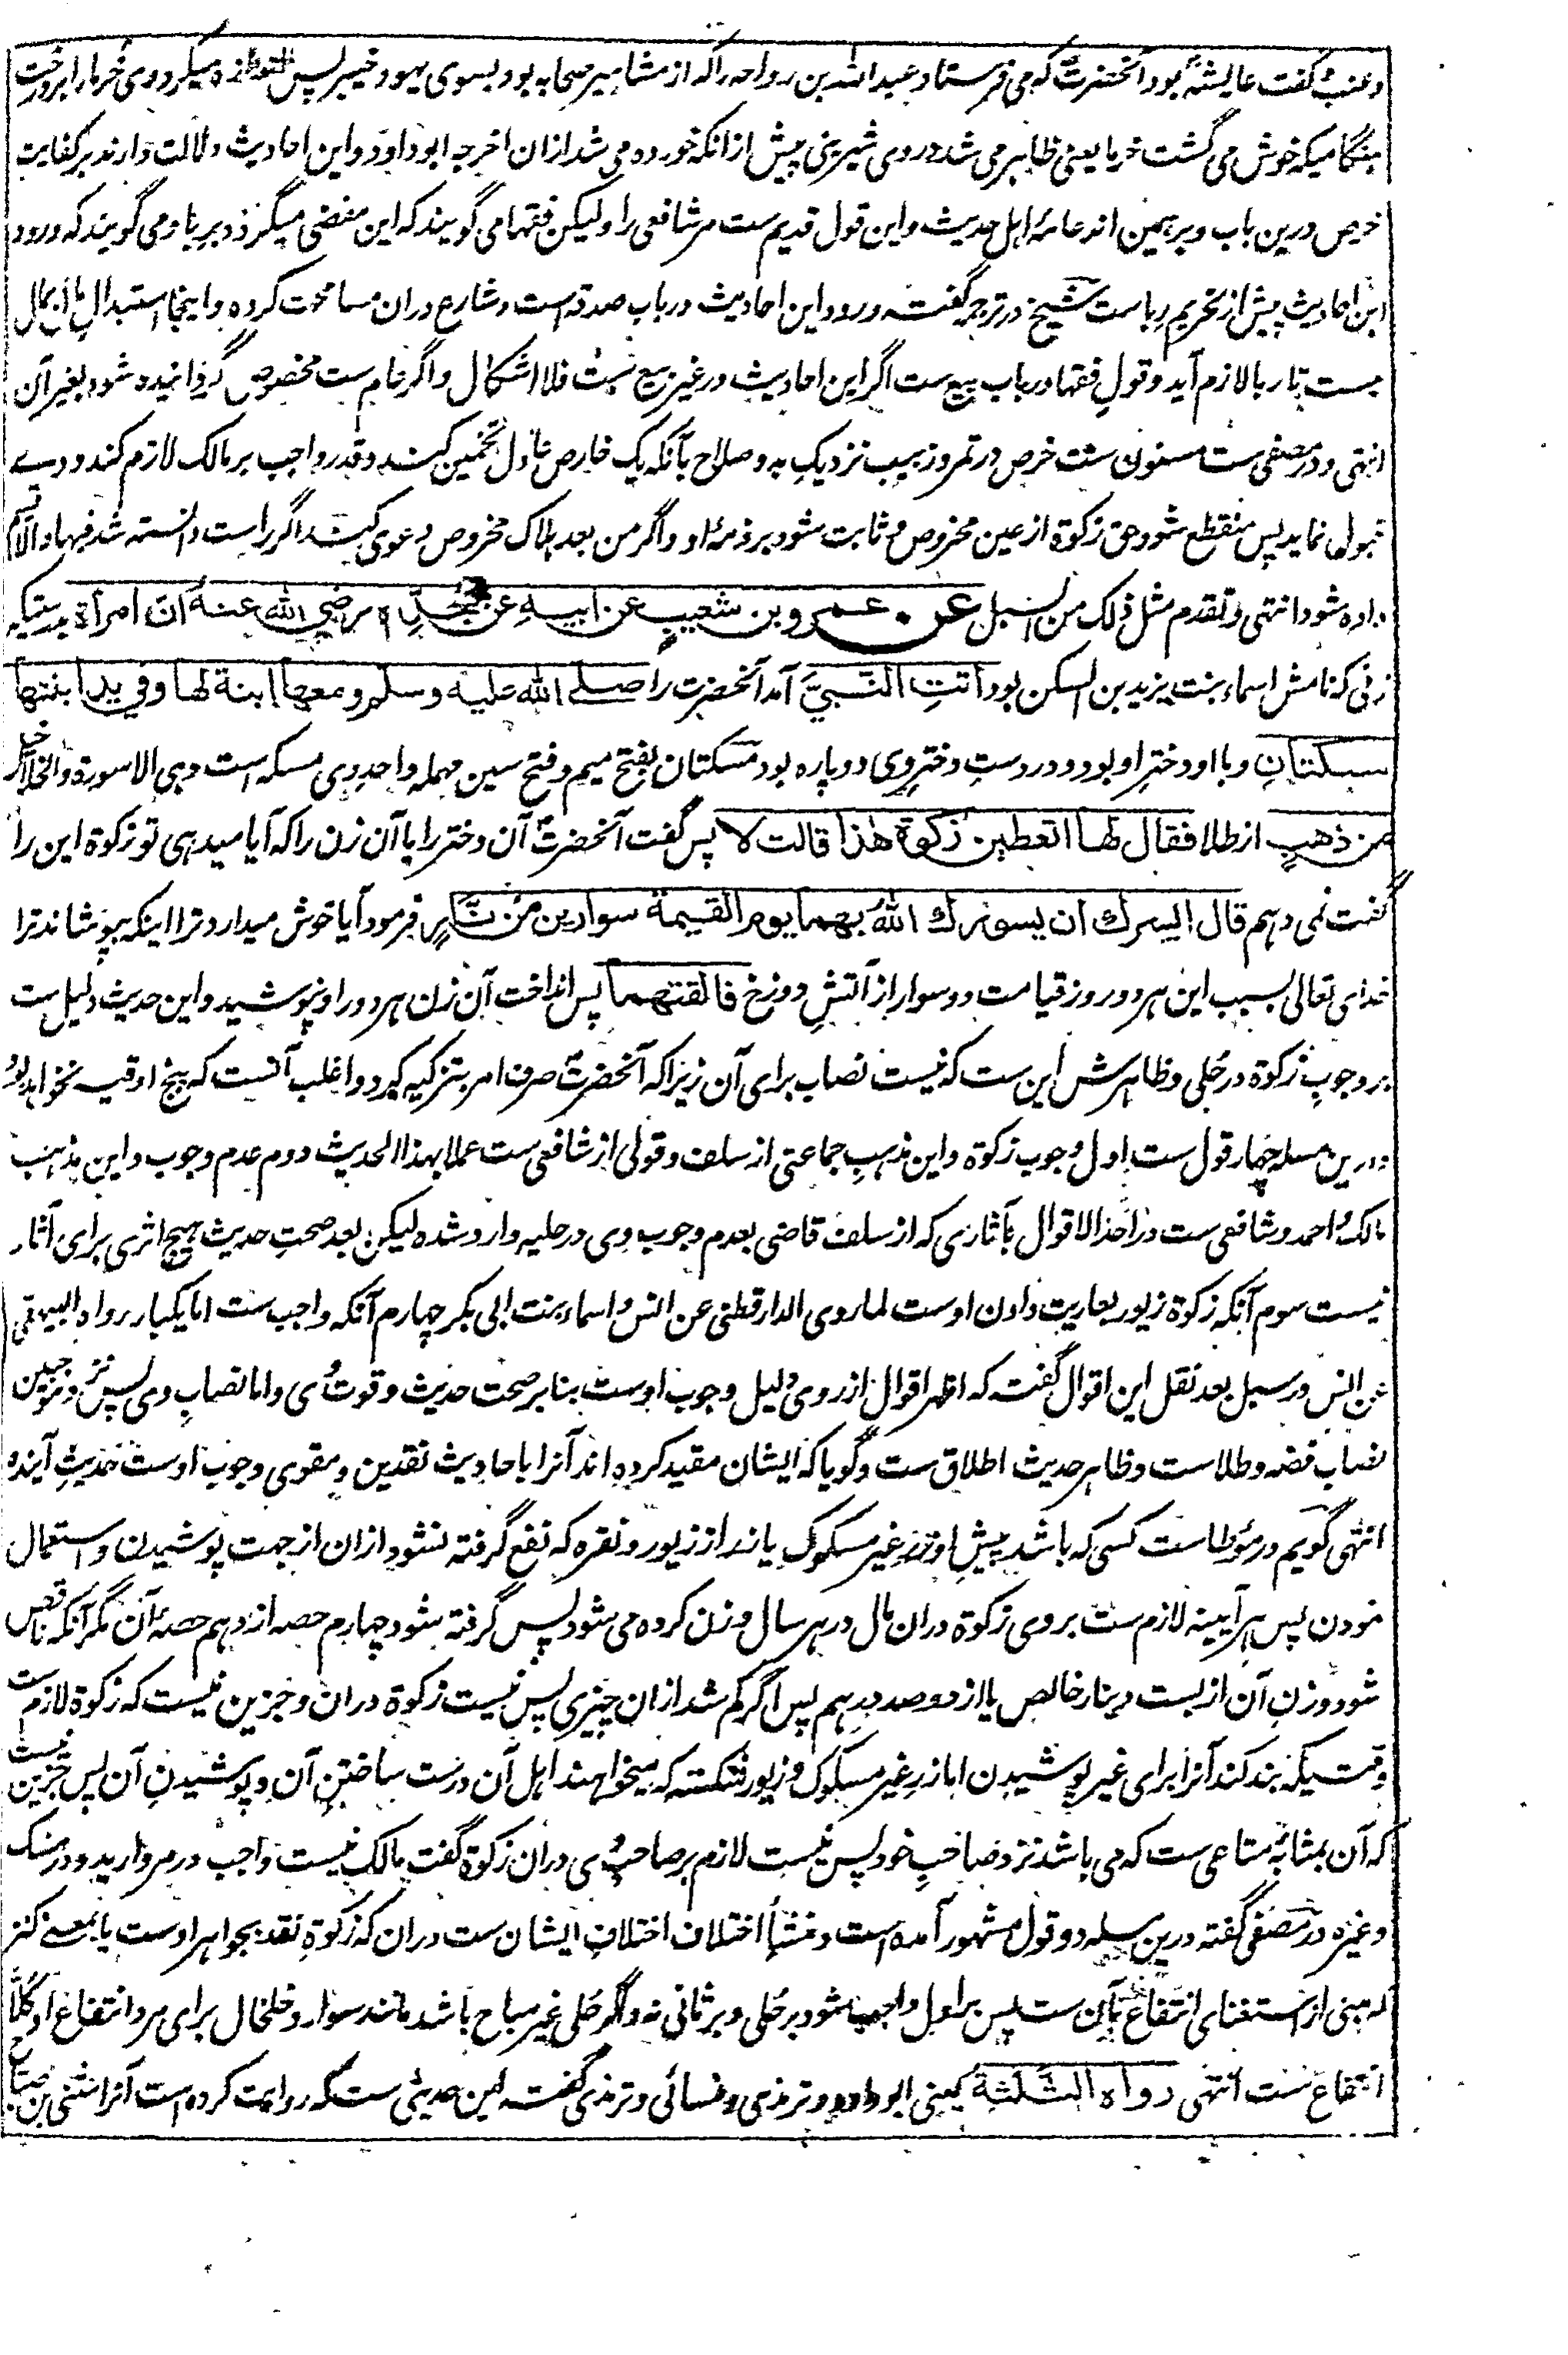 وعنب گفت عایشهؓ بود آنحضرتؐ که می فرستاد عبدالله بن رواحه را که از مشاهیر صحابه بود بسوی یهود خیبر پس اندازه میکرد وی خرما را بر درخت
هنگامیکه خوش می گشت خرما یعنی ظاهر می شد در وی شیرینی پیش ازانکه خورده می شد ازان اخرجه ابوداود و این احادیث دلالت دارند بر کفایت
خرص درین باب و برهمین اند عامهٔ اهل حدیث و این قول قدیم ست مر شافعی را ولیکن فقها می گویند که این مفضی میگردد بربا و می گویند که ورود
این احادیث پیش از تحریم ربا ست شیخ در ترجمه گفته ورود این احادیث در باب صدقه است و شارع دران مسامحت کرده و اینجا استبدال مال بمال
نیست تا ربا لازم آید و قولِ فقها در باب بیع ست اگر این احادیث در غیر بیع ست فلا اشکال و اگر عام ست مخصوص گردانیده شود بغیر آن
انتهی و در مصفی ست مسنون ست خرص در تمر و زبیب نزدیک بدو صلاح بآنکه یک خارص عادل تخمین کند و قدر واجب بر مالک لازم کند و وے
قبول نماید پس منقطع شود حق زکوة از عین مخروص و ثابت شود بر ذمهٔ او و اگر من بعد هلاک مخروص دعوی کند اگر راست دانسته شد فبها والا قسم
داده شود انتهی و تقدم مثل ذلک من السبل عن عمرو بن شعیب عن ابیه عن جده رضی الله عنه ان امرأة بدرستیکه
زنی که نامش اسماء بنت یزید بن السکن بود اتت النبی آمد آنحضرت را صلی الله علیه وسلم ومعها ابنة لها وفی ید ابنتها
مسکتان و با او دختر او بود و در دست دختر وی دو پاره بود مسکتان بفتح میم و فتح سین مهمله واحد وی مسکه است و هی الاسورة والخلاخیل
من ذهب از طلا فقال لها اتعطین زکوة هذا قالت لا پس گفت آنحضرتؐ آن دختر را یا آن زن را که آیا میدهی تو زکوة این را
گفت نمی دهم قال ایسرک ان یسورک الله بهما یوم القیمة سوارین من نار فرمود آیا خوش میدارد ترا اینکه بپوشاند ترا
خدای تعالی بسبب این هر دو روز قیامت دو سوار از آتش دوزخ فالقتهما پس انداخت آن زن هر دو را و نپوشید و این حدیث دلیل ست
بر وجوب زکوة در حُلی و ظاهرش این ست که نیست نصاب برای آن زیرا که آنحضرتؐ صرف امر بتزکیه کرد و اغلب آنست که پنج اوقیه نخواهد بود
و درین مسله چهار قول ست اول وجوب زکوة و این مذهب جماعتی از سلف و قولی از شافعی ست عملا بهذا الحدیث دوم عدم وجوب و این مذهب
مالک و احمد و شافعی ست در احد الاقوال بآثاری که از سلف قاضی بعدم وجوب وی در حلیه وارد شده لیکن بعد صحت حدیث هیچ اثری برای آثار
نیست سوم آنکه زکوة زیور بعاریت دادن اوست لما روی الدارقطنی عن انس و اسماء بنت ابی بکر چهارم آنکه واجب ست اما یکبار رواه البیهقی
عن انس در سبل بعد نقل این اقوال گفت که اظهر اقوال از روی دلیل وجوب اوست بنابر صحت حدیث و قوت وی و اما نصاب وی پس نزد موجبین
نصاب فضه و طلاست و ظاهر حدیث اطلاق ست و گویا که ایشان مقید کرده اند آنرا باحادیث نقدین و مقوی وجوب اوست حدیث آینده
انتهی گویم در مؤطا ست کسی که باشد پیش او زر غیر مسکوک یا زر از زیور و نقره که نفع گرفته نشود ازان از جهت پوشیدن و استعمال
نمودن پس هر آیینه لازم ست بر وی زکوة دران مال در هر سال وزن کرده می شود پس گرفته شود چهارم حصه از دهم حصهٔ آن مگر آنکه ناقص
شود وزن آن از بست دینار خالص یا از دو صد درهم پس اگر کم شد ازان چیزی پس نیست زکوة دران و جز این نیست که زکوة لازم ست
وقتیکه بند کند آنرا برای غیر پوشیدن اما زر غیر مسکوک و زیور شکسته که میخواهند اهل آن درست ساختن آن و پوشیدن آن پس جز این نیست
که آن بمثابهٔ متاعی ست که می باشد نزد صاحب خود پس نیست لازم بر صاحب وی دران زکوة گفت مالک نیست واجب در مروارید و در مشک
و غیره در مصفی گفته درین مسله دو قول مشهور آمده است و منشأ اختلاف اختلاف ایشان ست دران که زکوة نقد بجواهر اوست یا بمعنے کنز
که مبنی از استغنای انتفاع بآن ست پس بر اول واجب شود بر حُلی و بر ثانی نه و اگر حُلی غیر مباح باشد مانند سوار و خلخال برای مرد انتفاع او کلا
انتفاع ست انتهی رواه الثلثة یعنی ابوداود و ترمذی و نسائی و ترمذی گفته این حدیثی ست که روایت کرده است آنرا مثنی بن صباح